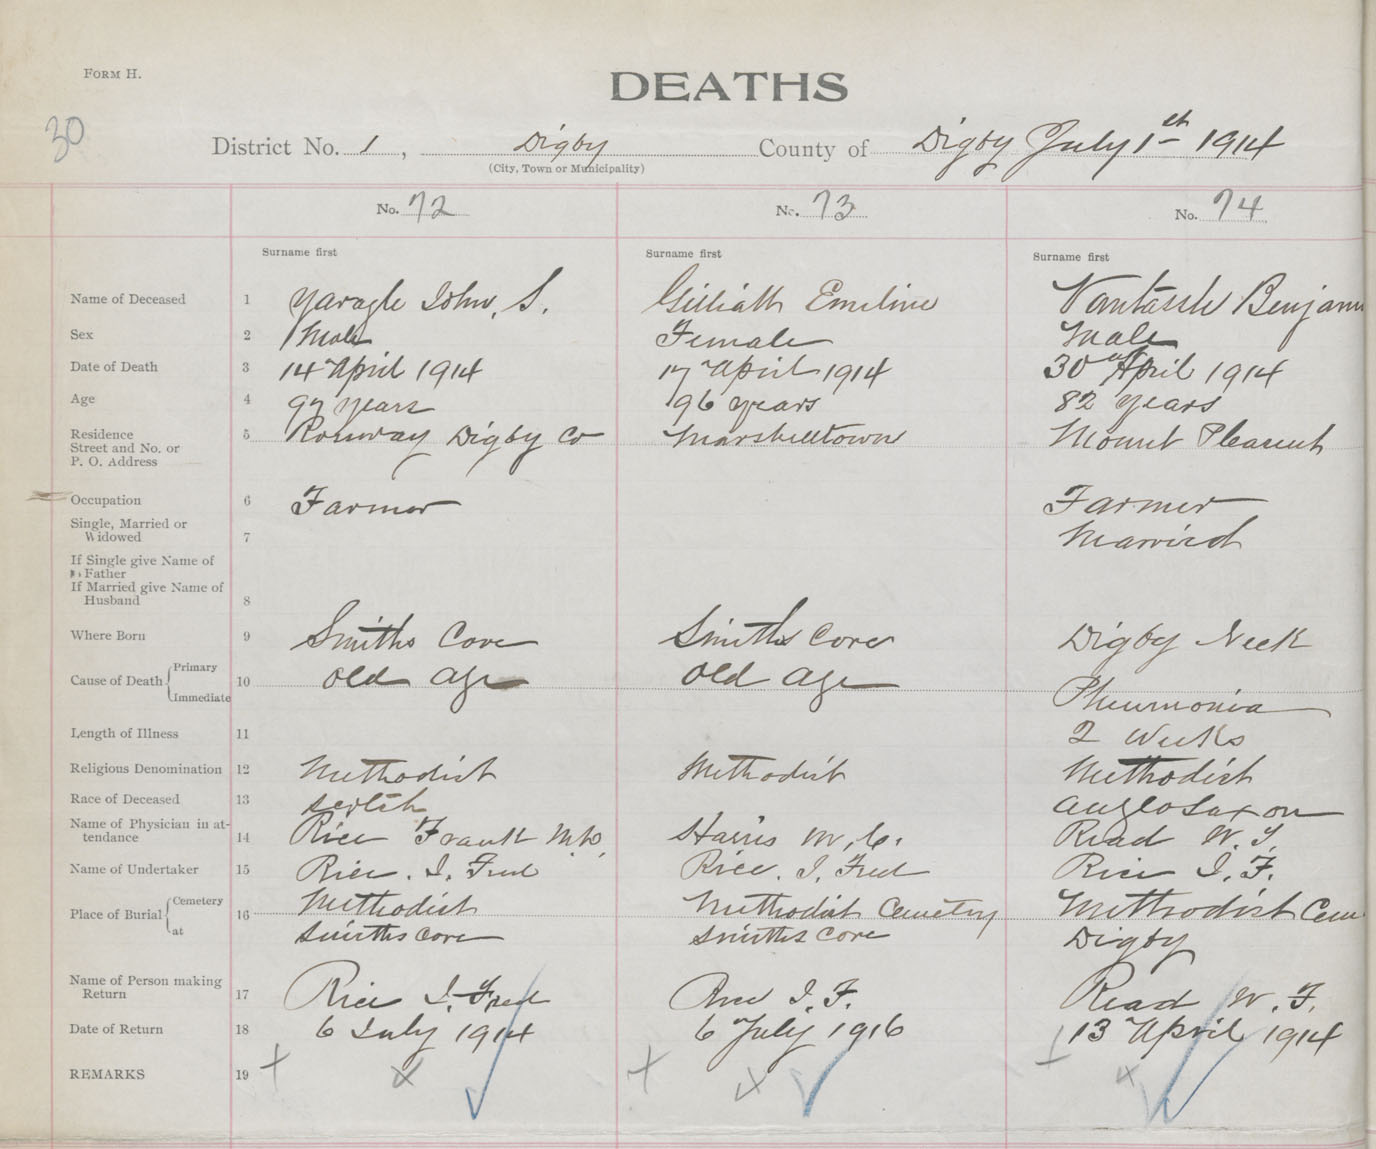 FORM H.
DEATHS
30
District No. 1, Digby County of Digby July 1st 1914
(City, Town or Municipality)
No. 72 No. 73 No. 74
Surname first Surname first Surname first
Name of Deceased 1 John, S. Emeline Vantassle Benjam
Sex 2 Male Female Male
Date of Death 3 14 April 1914 17 April 1914 30 April 1914
Age 4 97 years 96 years 82 years
Residence 5 Digby Co Marshelltown Mount Pleasent
Street and No. or
P. O. Address
Occupation 6 Farmer Farmer
Single, Married or
Widowed 7 Married
If Single give Name of
Father
If Married give Name of
Husband 8
Where Born 9 Smiths Cove Smiths Cove Digby Neck
Cause of Death Primary
Immediate 10 old age old age Pneumonia
Length of Illness 11 2 Weeks
Religious Denomination 12 Methodist Methodist Methodist
Race of Deceased 13 Scotch anglo Saxon
Name of Physician in at-
tendance 14 Rice Frank M.D. Harris Read
Name of Undertaker 15 Rice. I. Fred Rice. I. Fred Rice I. F.
Place of Burial Cemetery 16 Methodist Methodist Cemetery Methodist Cem
at Smiths Cove Smiths Cove Digby
Name of Person making
Return 17 Rice I. Fred Rice I. F. Read W. F.
Date of Return 18 6 July 1914 6 July 1916 13 April 1914
REMARKS 19